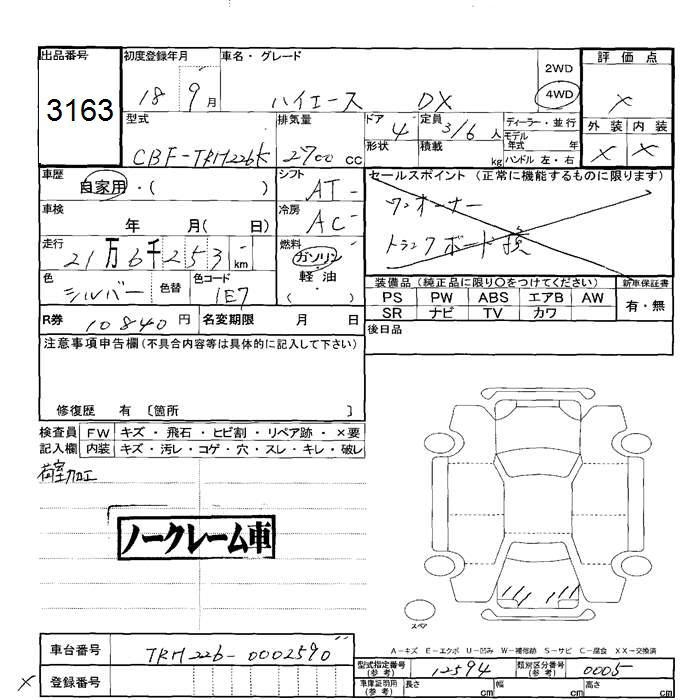 出品番号 初度登録年月 車名・グレード 評価点
3163 18 9月 ハイエース DX 2WD 4WD ×
型式 排気量 ドア 4 定員 3/6人 ディーラー・並行 外装 内装
CBF-TRH226K 2700cc 形状 積載 kg モデル年式 年 ハンドル 左・右 × ×
車歴 自家用・( ) シフト AT セールスポイント (正常に機能するものに限ります)
車検 年 月( 日) 冷房 AC ワンオーナー
走行 21万6千253km 燃料 ガソリン・軽油 ( ) トランクボード換
色 シルバー 色替 色コード 1E7 装備品 (純正品に限り〇をつけてください) 新車保証書
PS PW ABS エアB AW 有・無
SR ナビ TV カワ
R券 10840円 名変期限 月 日 後日品
注意事項申告欄(不具合内容等は具体的に記入して下さい)
修復歴 有 〔箇所 〕
検査員 FW キズ・飛石・ヒビ割・リペア跡・×要
記入欄 内装 キズ・汚レ・コゲ・穴・スレ・キレ・破レ
荷室加工
ノークレーム車
スペア
A-キズ E-エクボ U-凹み W-補修跡 S-サビ C-腐食 XX-交換済
車台番号 TRH226-0002590
型式指定番号(参考) 12594 類別区分番号(参考) 0005
× 登録番号 車庫証明用(参考) 長さ cm 幅 cm 高さ cm